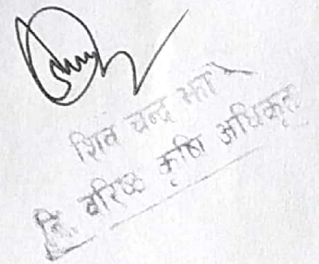 शिव चन्द्र झा
नि. वरिष्ठ कृषि अधिकृत